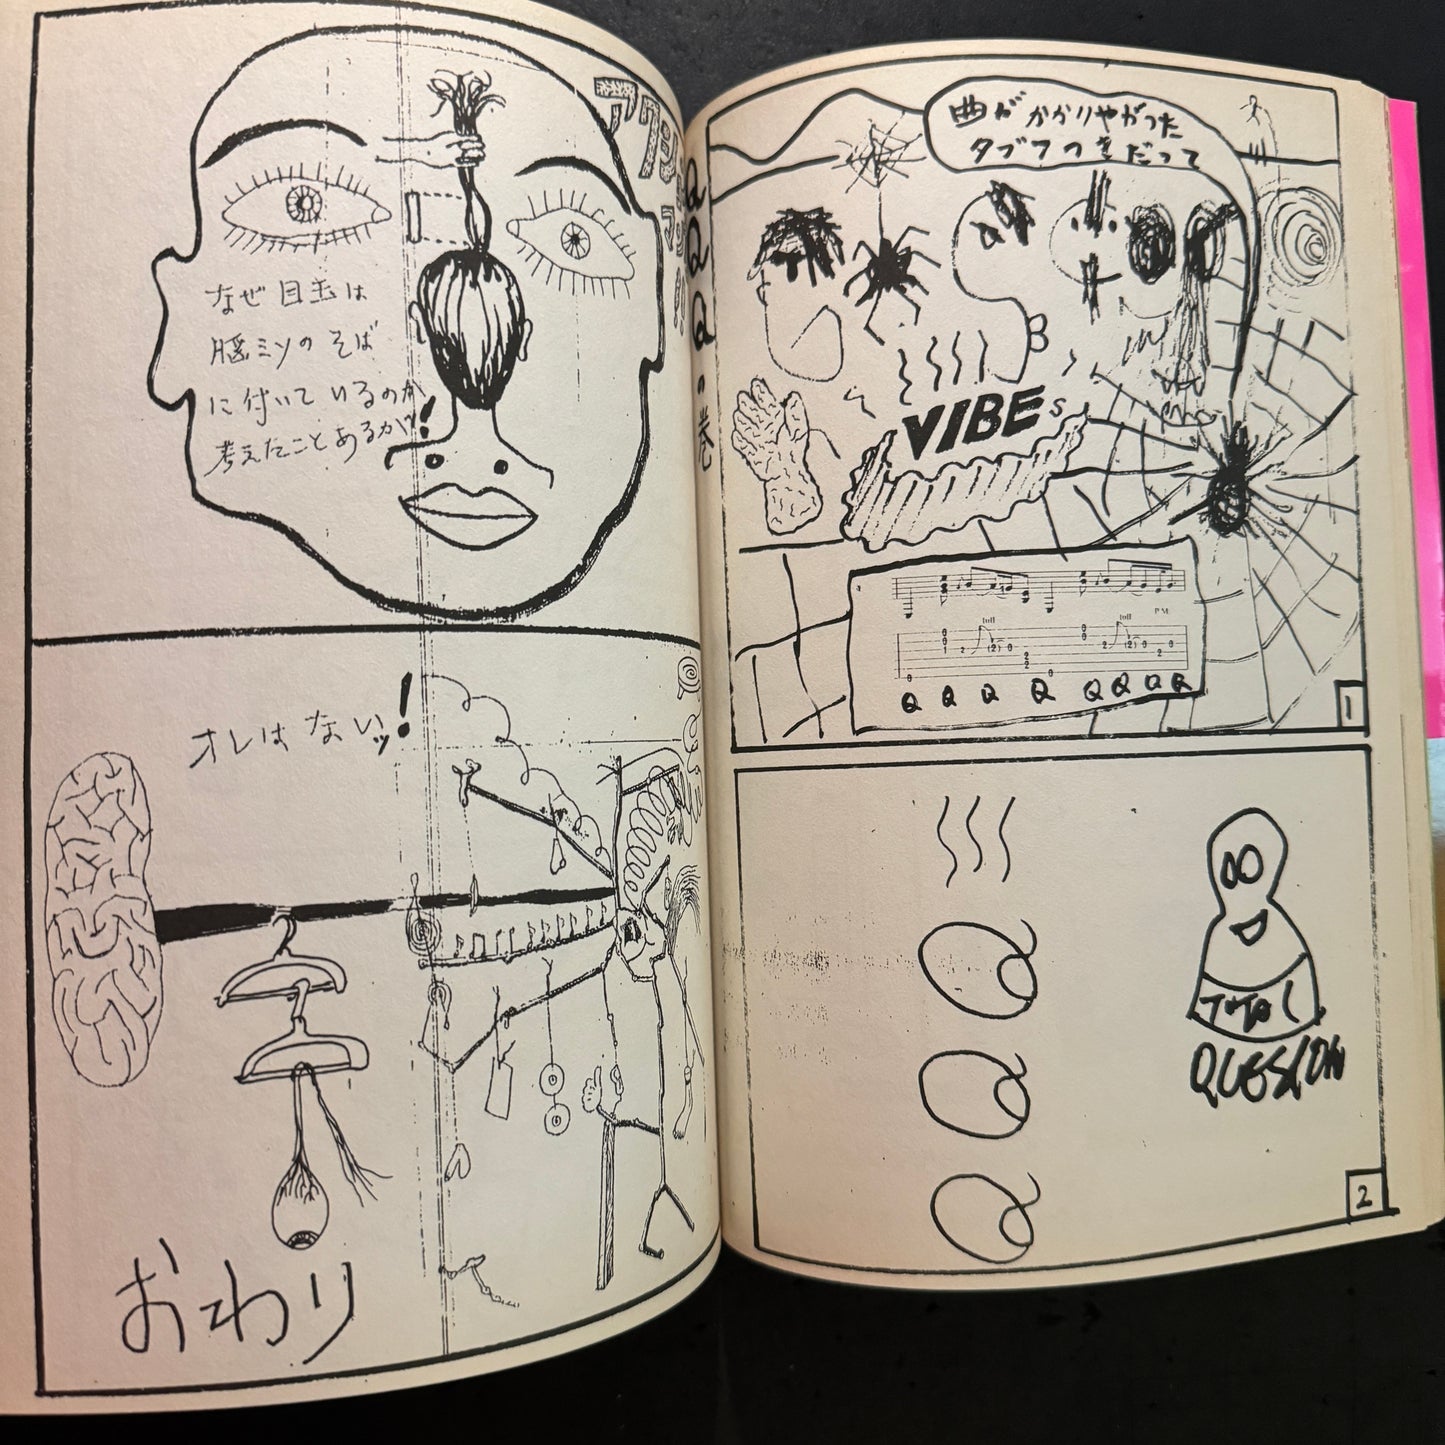 曲がかかりやがった
タブフつきだって
VIBEs
3
full
full
P.M.
Q Q Q Q Q Q Q Q
1
Q
Q
Q
TOTAL
QUESION
2
QQQの巻
なぜ目玉は
脳ミソのそば
に付いているのか
考えたことあるかッ!
オレはないッ!
おわり